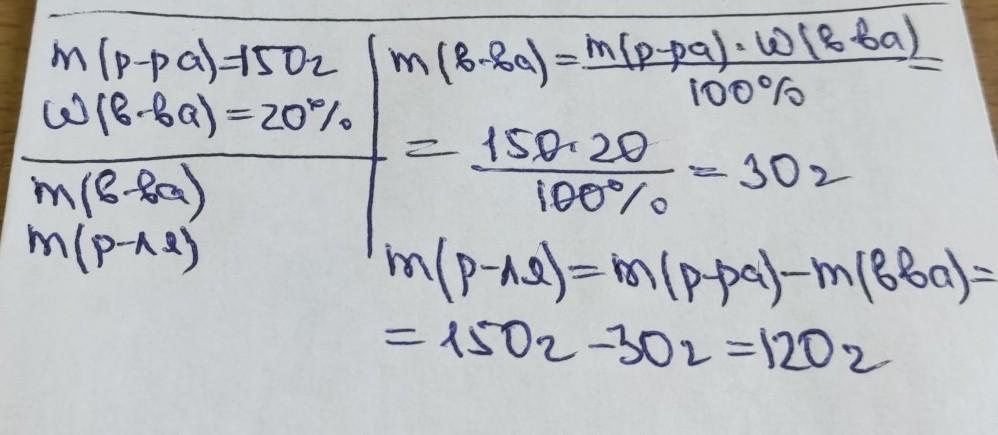 m(р-ра)=150г
w(в-ва)=20%
m(в-ва)
m(р-ля)
m(в-ва)=m(р-ра)·w(в-ва)/100%=
=150·20/100%=30г
m(р-ля)=m(р-ра)-m(вва)=
=150г-30г=120г